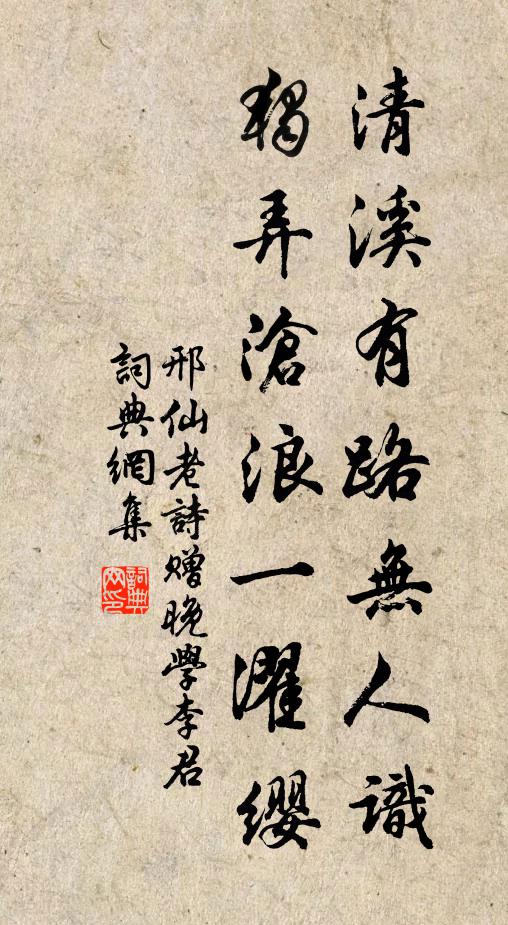 清溪有路無人識
獨弄滄浪一濯纓
邢仙老詩贈晚學李君
詞典網集
詞典
网印